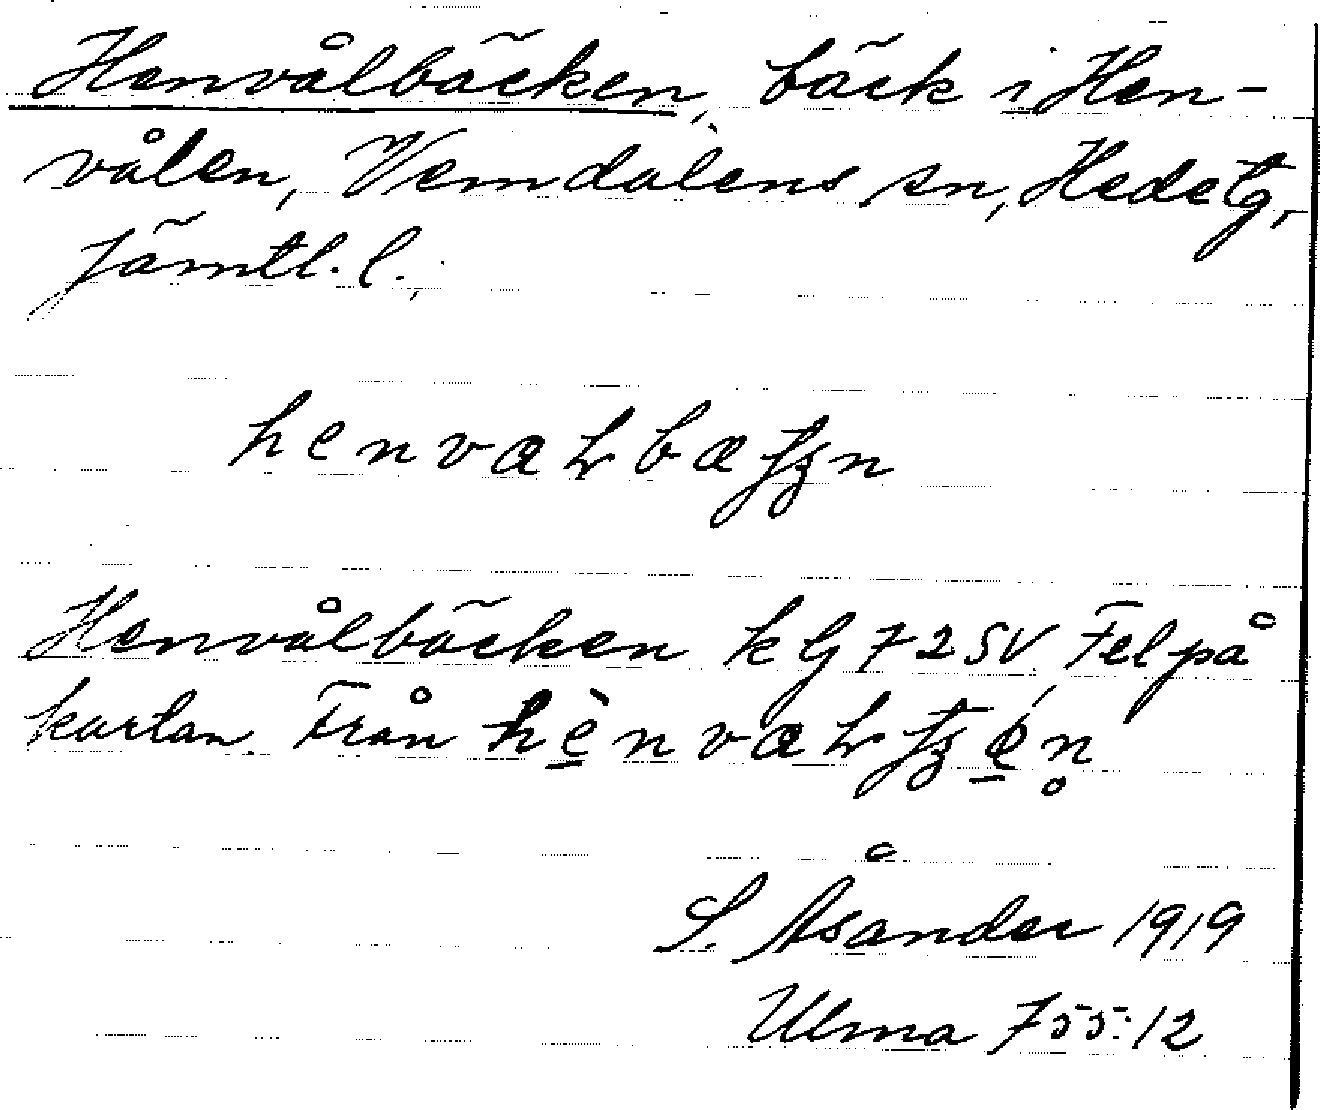 Henvålbäcken, bäck i Hen-
vålen, Vemdalens sn, Hede tg,
Jämtl. l.
Henvålbäcken kG 72 SV. Fel på
kartan. Från
S. Åsander 1919
Ulma 755:12